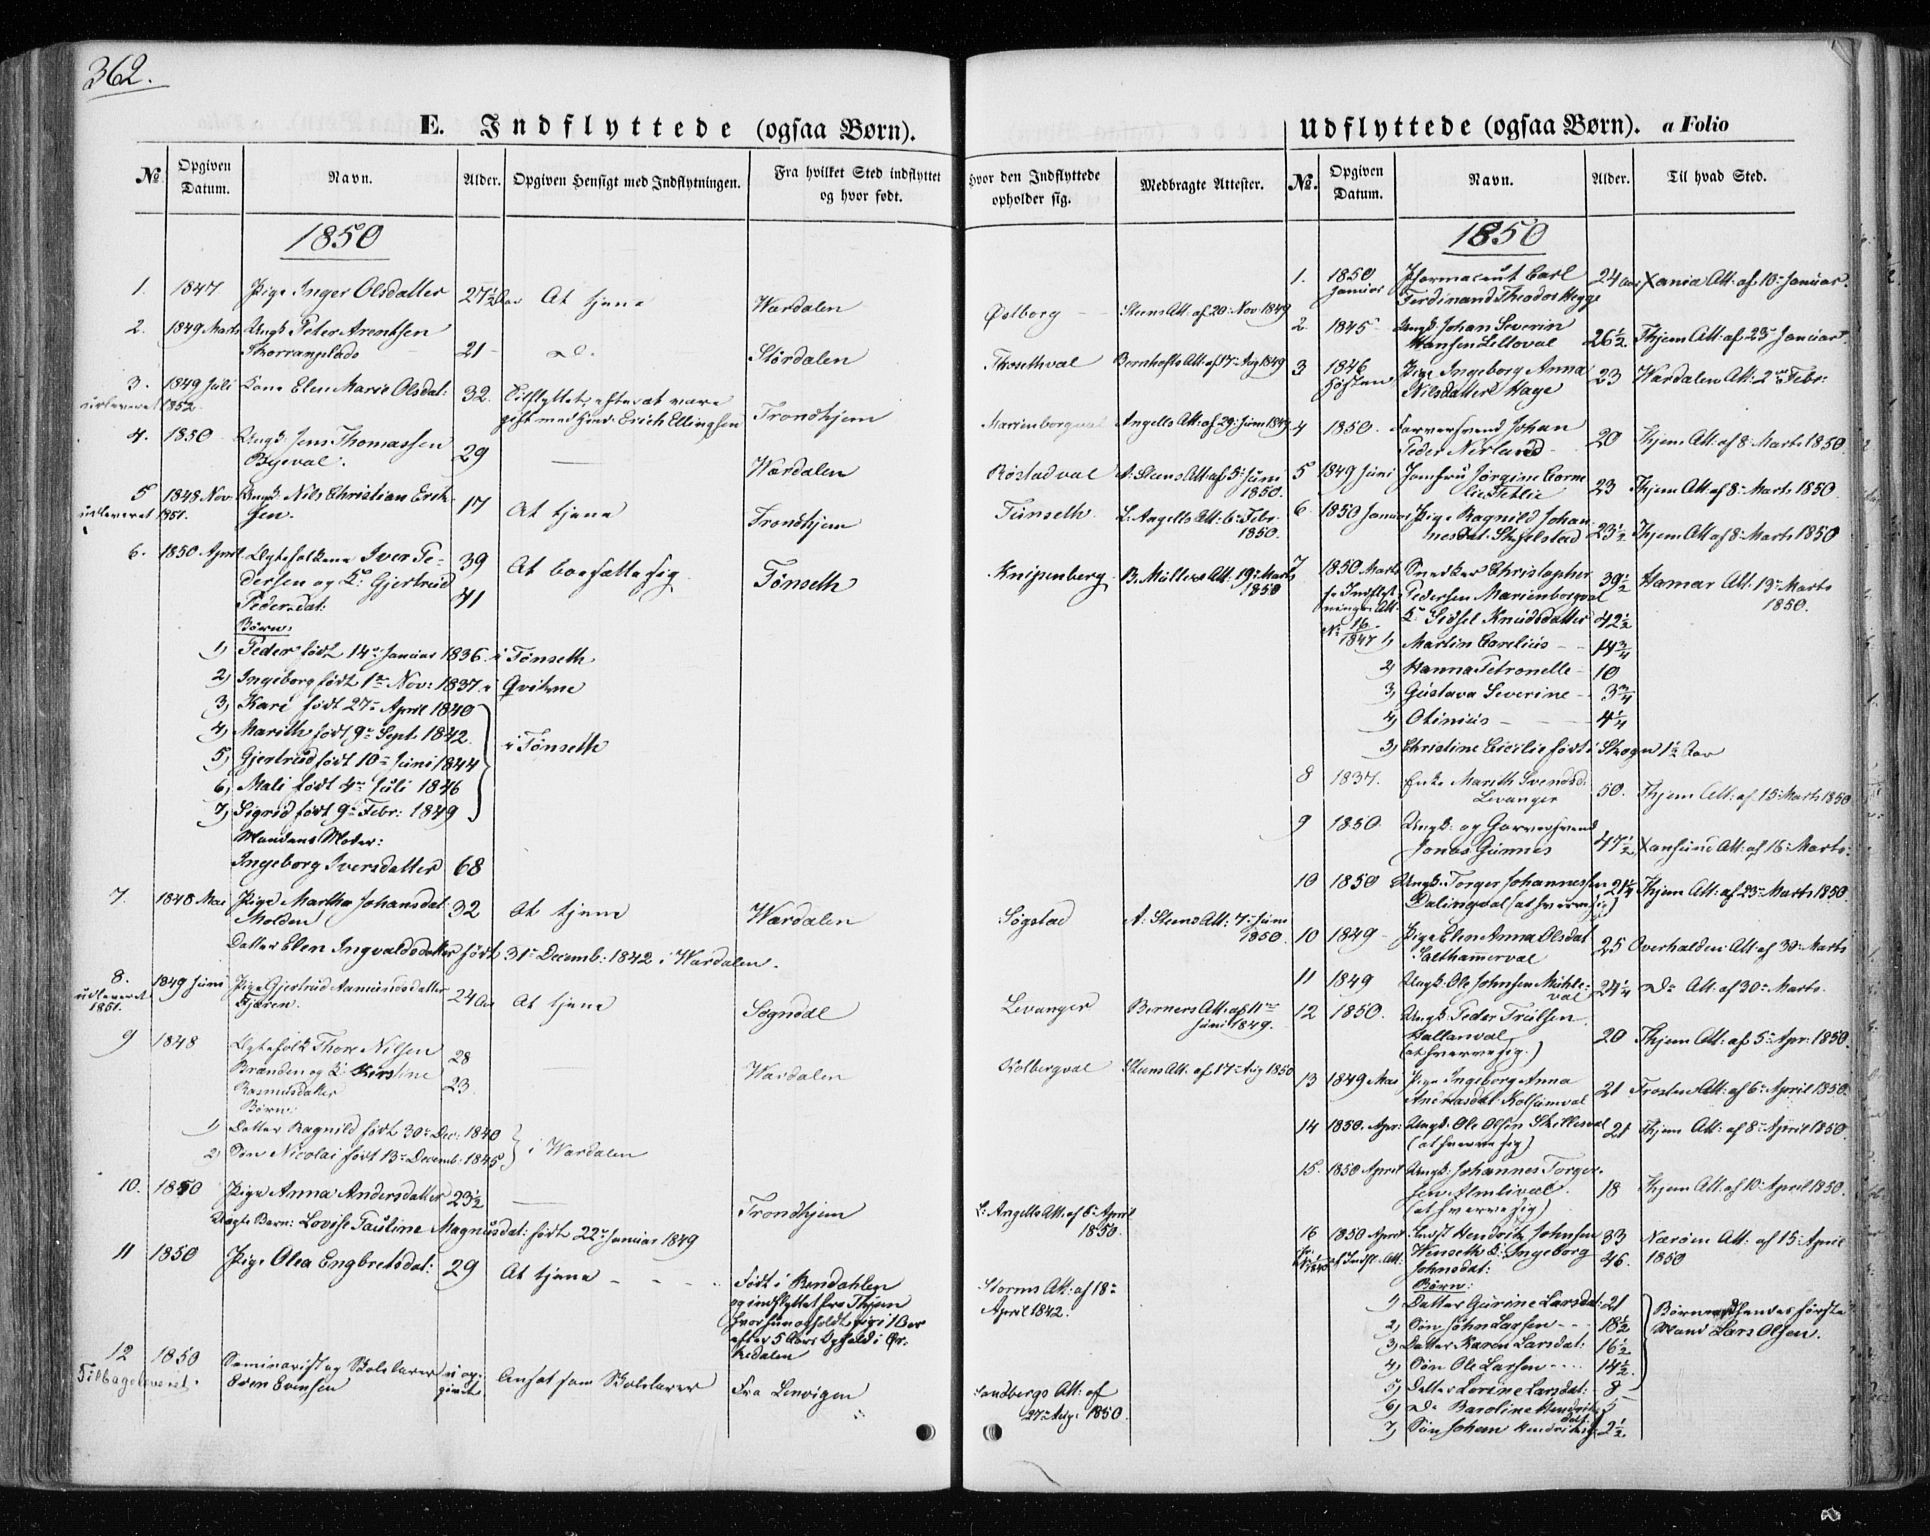 362.
E. Indflyttede (ogsaa Børn).
№ Opgiven Datum. Navn. Alder. Opgiven Hensigt med Indflytningen. Fra hvilket Sted indflyttet og hvor født. Hvor den Indflyttede opholder sig. Medbragte Attester.
1850
1. 1847 Pige Inger Olsdatter 27½ Aar At tjene Wærdalen Østborg Steens Att: af 20. Nov 1849
2. 1849 Marts Ungk. Peter Arentsen 21 D°. Størdalen Bernhofts Att: af 17 Aug 1849
3. 1849 Juli Kone Elen Marie Olsdat: 32. Tilflyttet efter at være
udleveret 1852. gift med Erich Ellingsen Trondhjem Marienborgval Angells Att: af 29. Juni 1849
4. 1850 Ungk. Jens Thomassen
Byeval. 29 Wærdalen Røstadval A. Steens Att: af 5. Juni
1850.
5 1848 Nov Ungk. Nils Christian Erik-
udleveret 1851. sen. 17 At tjene Trondhjem Tünseth L. Angells Att: 6 Febr.
1850.
6. 1850 April Ægtefolkene Iver Pe- 39 At bosætte sig Tønseth Knipenberg B. Müllers Att: 19 Marts
dersen og K. Gjertrud 1850
Pedersdat: 41
Børn:
1) Peder født 14 Januar 1836. i Tønseth
2) Ingeborg født 1 Nov: 1837. i Qvikne
3) Kari født 27 April 1840
4) Marith født 9 Sept. 1842. i Tønseth
5) Gjertrud født 10 Juni 1844
6) Mali født 4 Juli 1846
7) Sigrid født 9 Febr: 1849
Mandens Moder:
Ingeborg Iversdatter 68
7. 1848 Mai Pige Martha Johansdat 32 At tjene Wærdalen Søgstad A: Steens Att: 7. Juni
Molden 1850.
Datter Elen Ingvaldsdatter født 31 Decemb. 1842 i Wærdalen.
8. 1849 Juni Pige Gjertrud Aamundsdatter 24 Aar At tjene Sognedal Levanger Berners Att: af 11
udleveret 1851. Fjæren. Juni 1849.
9 1848 Ægtefolk Thore Nilsen 28 Wærdalen Kolbergval Steens Att: af 17 Aug 1850
Brænden og K. Kirstine 23
Rasmusdatter
Børn:
1) Datter Ragnild født 30 Dec: 1840
2) Søn Nicolai født 13 Decemb. 1845 i Wærdalen
10. 1850 Pige Anna Andersdatter 23½ Trondhjem L: Angells Att: af 6 April
1850.
Uægte Barn: Lovise Pauline Magnusdat: født 22 Januar 1849
11 1850 Pige Olea Engbretsdat: 29 At tjene Født i Rendahlen Storms Att: af 18
og indflyttet fra Thjem April 1842.
hvor hun opholdt sig i 1 Aar
efter 5 Aars Ophold i Ør-
kedalen
12 1850 Seminarist og Skolelærer u op- Ansat som Skolelærer Fra Lenvigen Sandbergs Att: af
Tilbageleveret. Even Evensen givet 27 Aug: 1850.
Udflyttede (ogsaa Børn). a Folio
№. Opgiven Datum. Navn. Alder. Til hvad Sted.
1850
1. 1850 Pharmaceut Carl 24 Aar Xania Att: af 10 Januar.
Januar Ferdinand Theodor Hegge
2. 1845 Ungk: Johan Severin
Hansen 26½ Thjem Att: af 23 Januar
3 1846 Pige Ingeborg Anna
Høsten Nilsdatter Hage 23 Wærdalen Att: 2 Febr:
4 1850. Farversvend Johan
Peder Nerland 20 Thjem Att: af 8 Marts 1850.
5 1849 Juni Jomfru Jørgine Corne-
lie Tetlie 23 Thjem Att: af 8 Marts 1850.
6. 1850 Januar Pige Ragnild Johan-
nesdat. Skjelstad 23½ Thjem Att: af 8 Marts 1850
7 1850 Marts Snedker Christopher 39½ Hamar Att: 13 Marts
Pedersen Marienborgval 1850.
K. Sidsel Knudsdatter 42½
№ 16/1847 1) Martin Carelius 14¾
2) Hanna Petronelle 10
3) Gustava Severine 3¾
4) Otinius 4¼
3) Christine Cicilie født i Skogn 1½ Aar
8 1837. Enke Marith Svendsd: 50. Thjem Att: af 15 Marts 1850
Levanger
9 1850. Ungk: og Garversvend
Jonas Günnes 47½ Xansund Att: af 16 Marts:
10 1850 Ungk: Torger Johannessen 21¼ Thjem Att: af 23 Marts 1850.
Dalingval (at hverve sig)
10 1849 Pige Elen Anna Olsdat 25 Overhalden Att: af 30 Marts
Salthammerval
11 1849 Ungk: Ole Johnsen Mühle-
val 24¼ D° Att: af 30 Marts.
12 1850. Ungk: Peder Trulsen
Hallanval 20 Thjem Att: af 5 Apr: 1850.
(at hverve sig.)
13 1849 Mai Pige Ingeborg Anna
Andreasdat: Kolsumval 21 Frosten Att: af 6 April 1850.
14 1850. Apr: Ungk: Ole Olsen Skillesval 21 Thjem Att: af 8 April 1850.
(at hverve sig)
15. 1850 April Ungk: Johannes Torger-
sen Almlival. 18 Thjem Att: af 10 April 1850.
(at hverve sig)
16 1850 April Indst Hendrik Johnsen 33 Nærøen Att: af 15 April
Winseth K. Ingeborg 46. 1850
Johnsdat:
Børn:
1) Datter Gurine Larsdat: 21
2) Søn John Larsen 18½ Børn med hendes første
3) Datter Karen Larsdat: 16½ Mand Lars Olsen.
4) Søn Ole Larsen 14½
5) Datter Lorine Larsdat: 8
6) D° Baroline Hendriks- 5
dat:
7) Søn Johan Hendriksen 2½